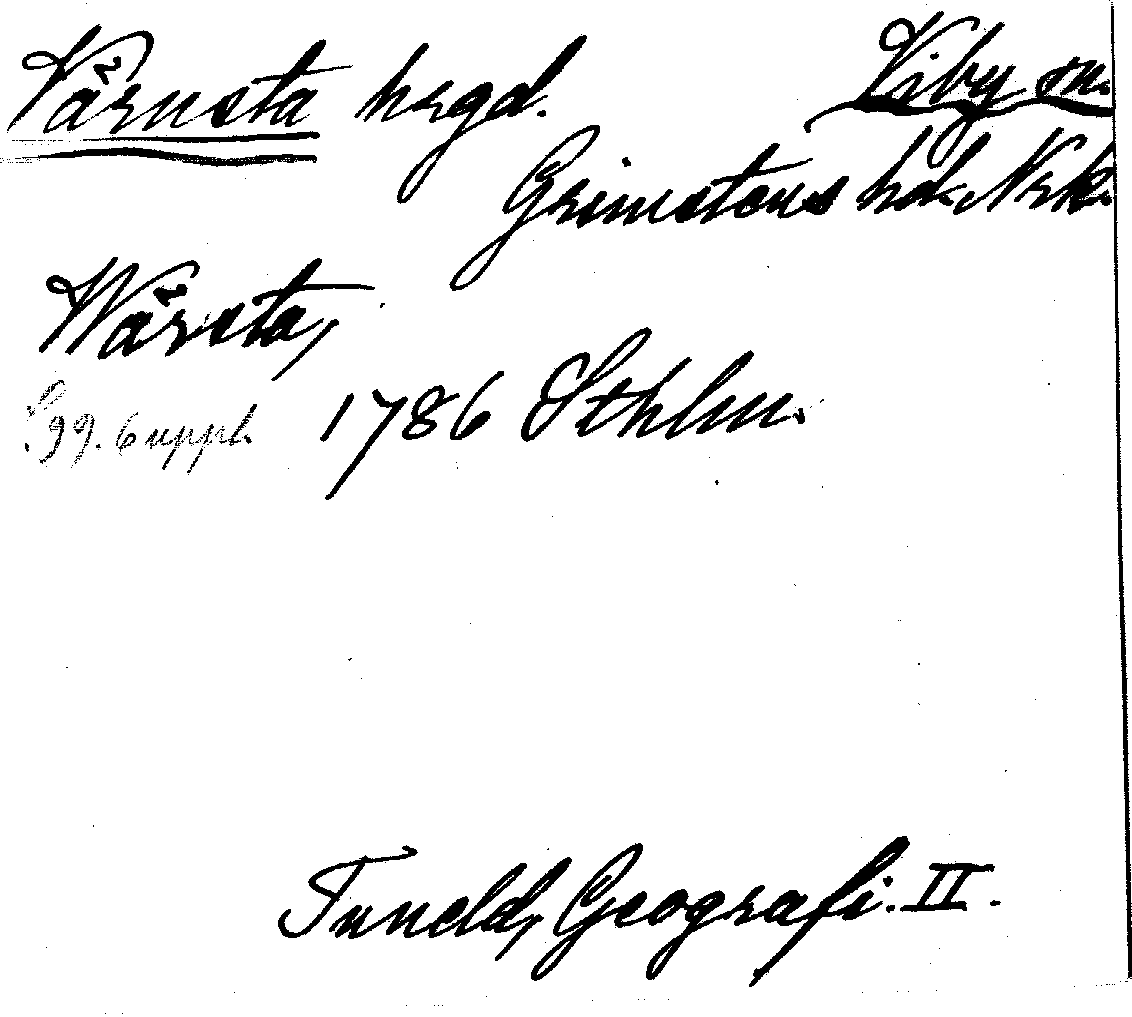 Vårnsta hrgd. Viby sn.
Grimstens hd. Nrk.
Wårsta,
S. 99. 6 uppl. 1786 Sthlm.
Tuneld, Geografi. II.